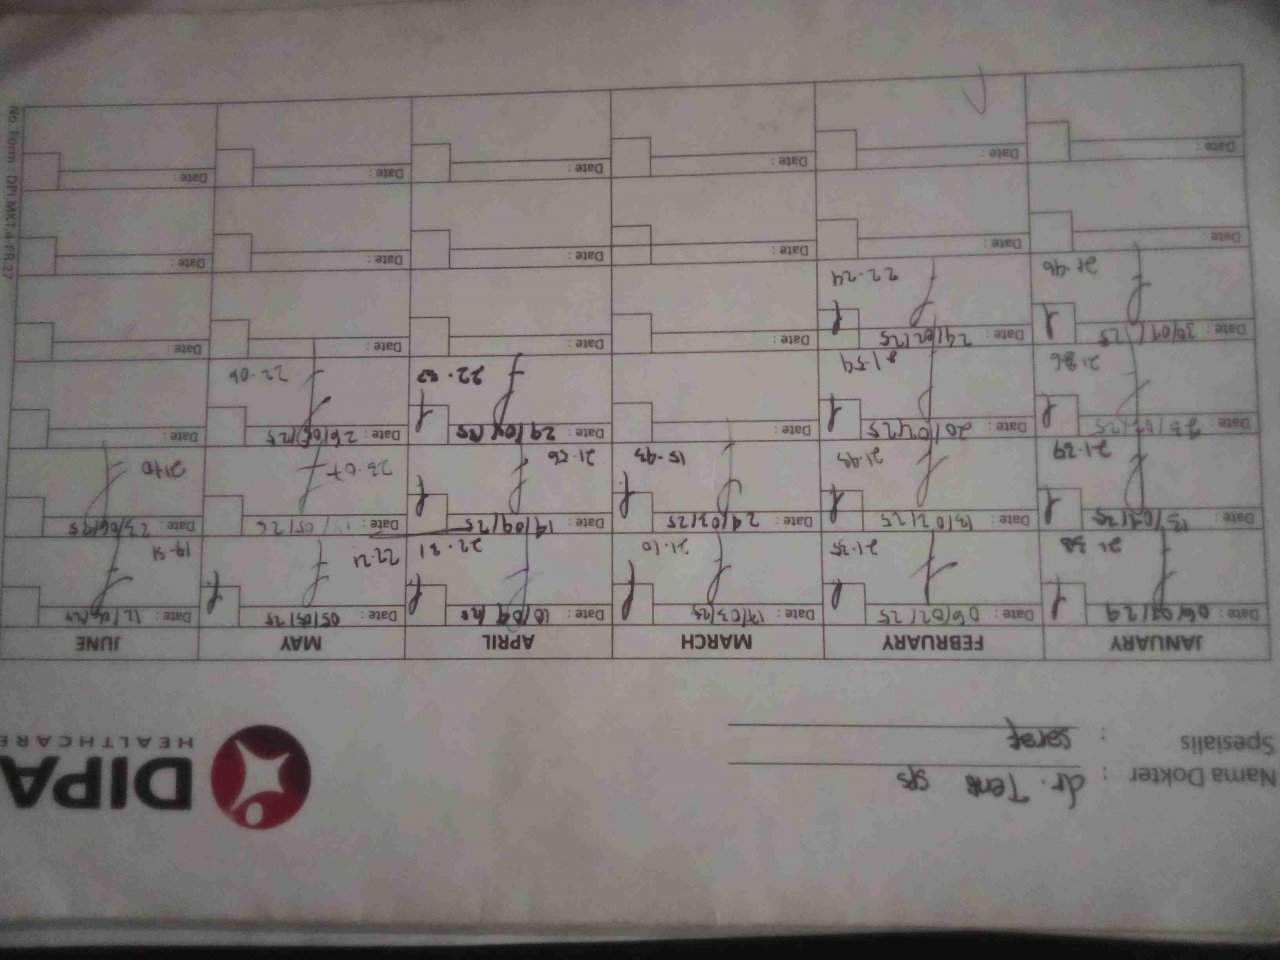 Nama Dokter : dr.
Spesialis : saraf
DIPA
HEALTHCARE
JANUARY FEBRUARY MARCH APRIL MAY JUNE
Date : 06/01/29 Date : 06/02/25 Date : 17/03/25 Date : 10/04/25 Date : 05/05/25 Date : 12/06/25
21.38 21.35 21.10 22.31 22.21 19.51
Date : 13/01/25 Date : 13/02/25 Date : 24/03/25 Date : 14/04/25 Date : Date : 23/06/25
21.29 21.43 15.43 21.56 23.07 2110
Date : 23/01/25 Date : 20/02/25 Date : Date : 29/04/25 Date : 26/05/25 Date :
21.36 21.54 22.06
Date : 30/01/25 Date : 24/02/25 Date : Date : Date : Date :
21.46 22.24
Date : Date : Date : Date : Date : Date :
Date : Date : Date : Date : Date : Date :
No. Form : DPI.MKT-4-FR.27